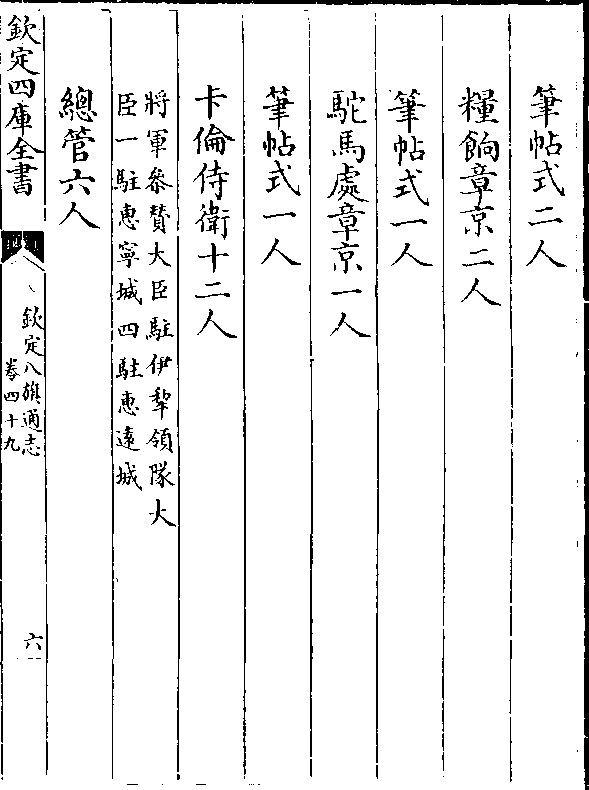 筆帖式二人
糧餉章京二人
筆帖式一人
駝馬處章京一人
筆帖式一人
卡倫侍衛十二人
將軍叅贊大臣駐伊犂領隊大
臣一駐惠寧城四駐惠遠城
總管六人
欽定四庫全書
欽定八旗通志
卷四十九
六